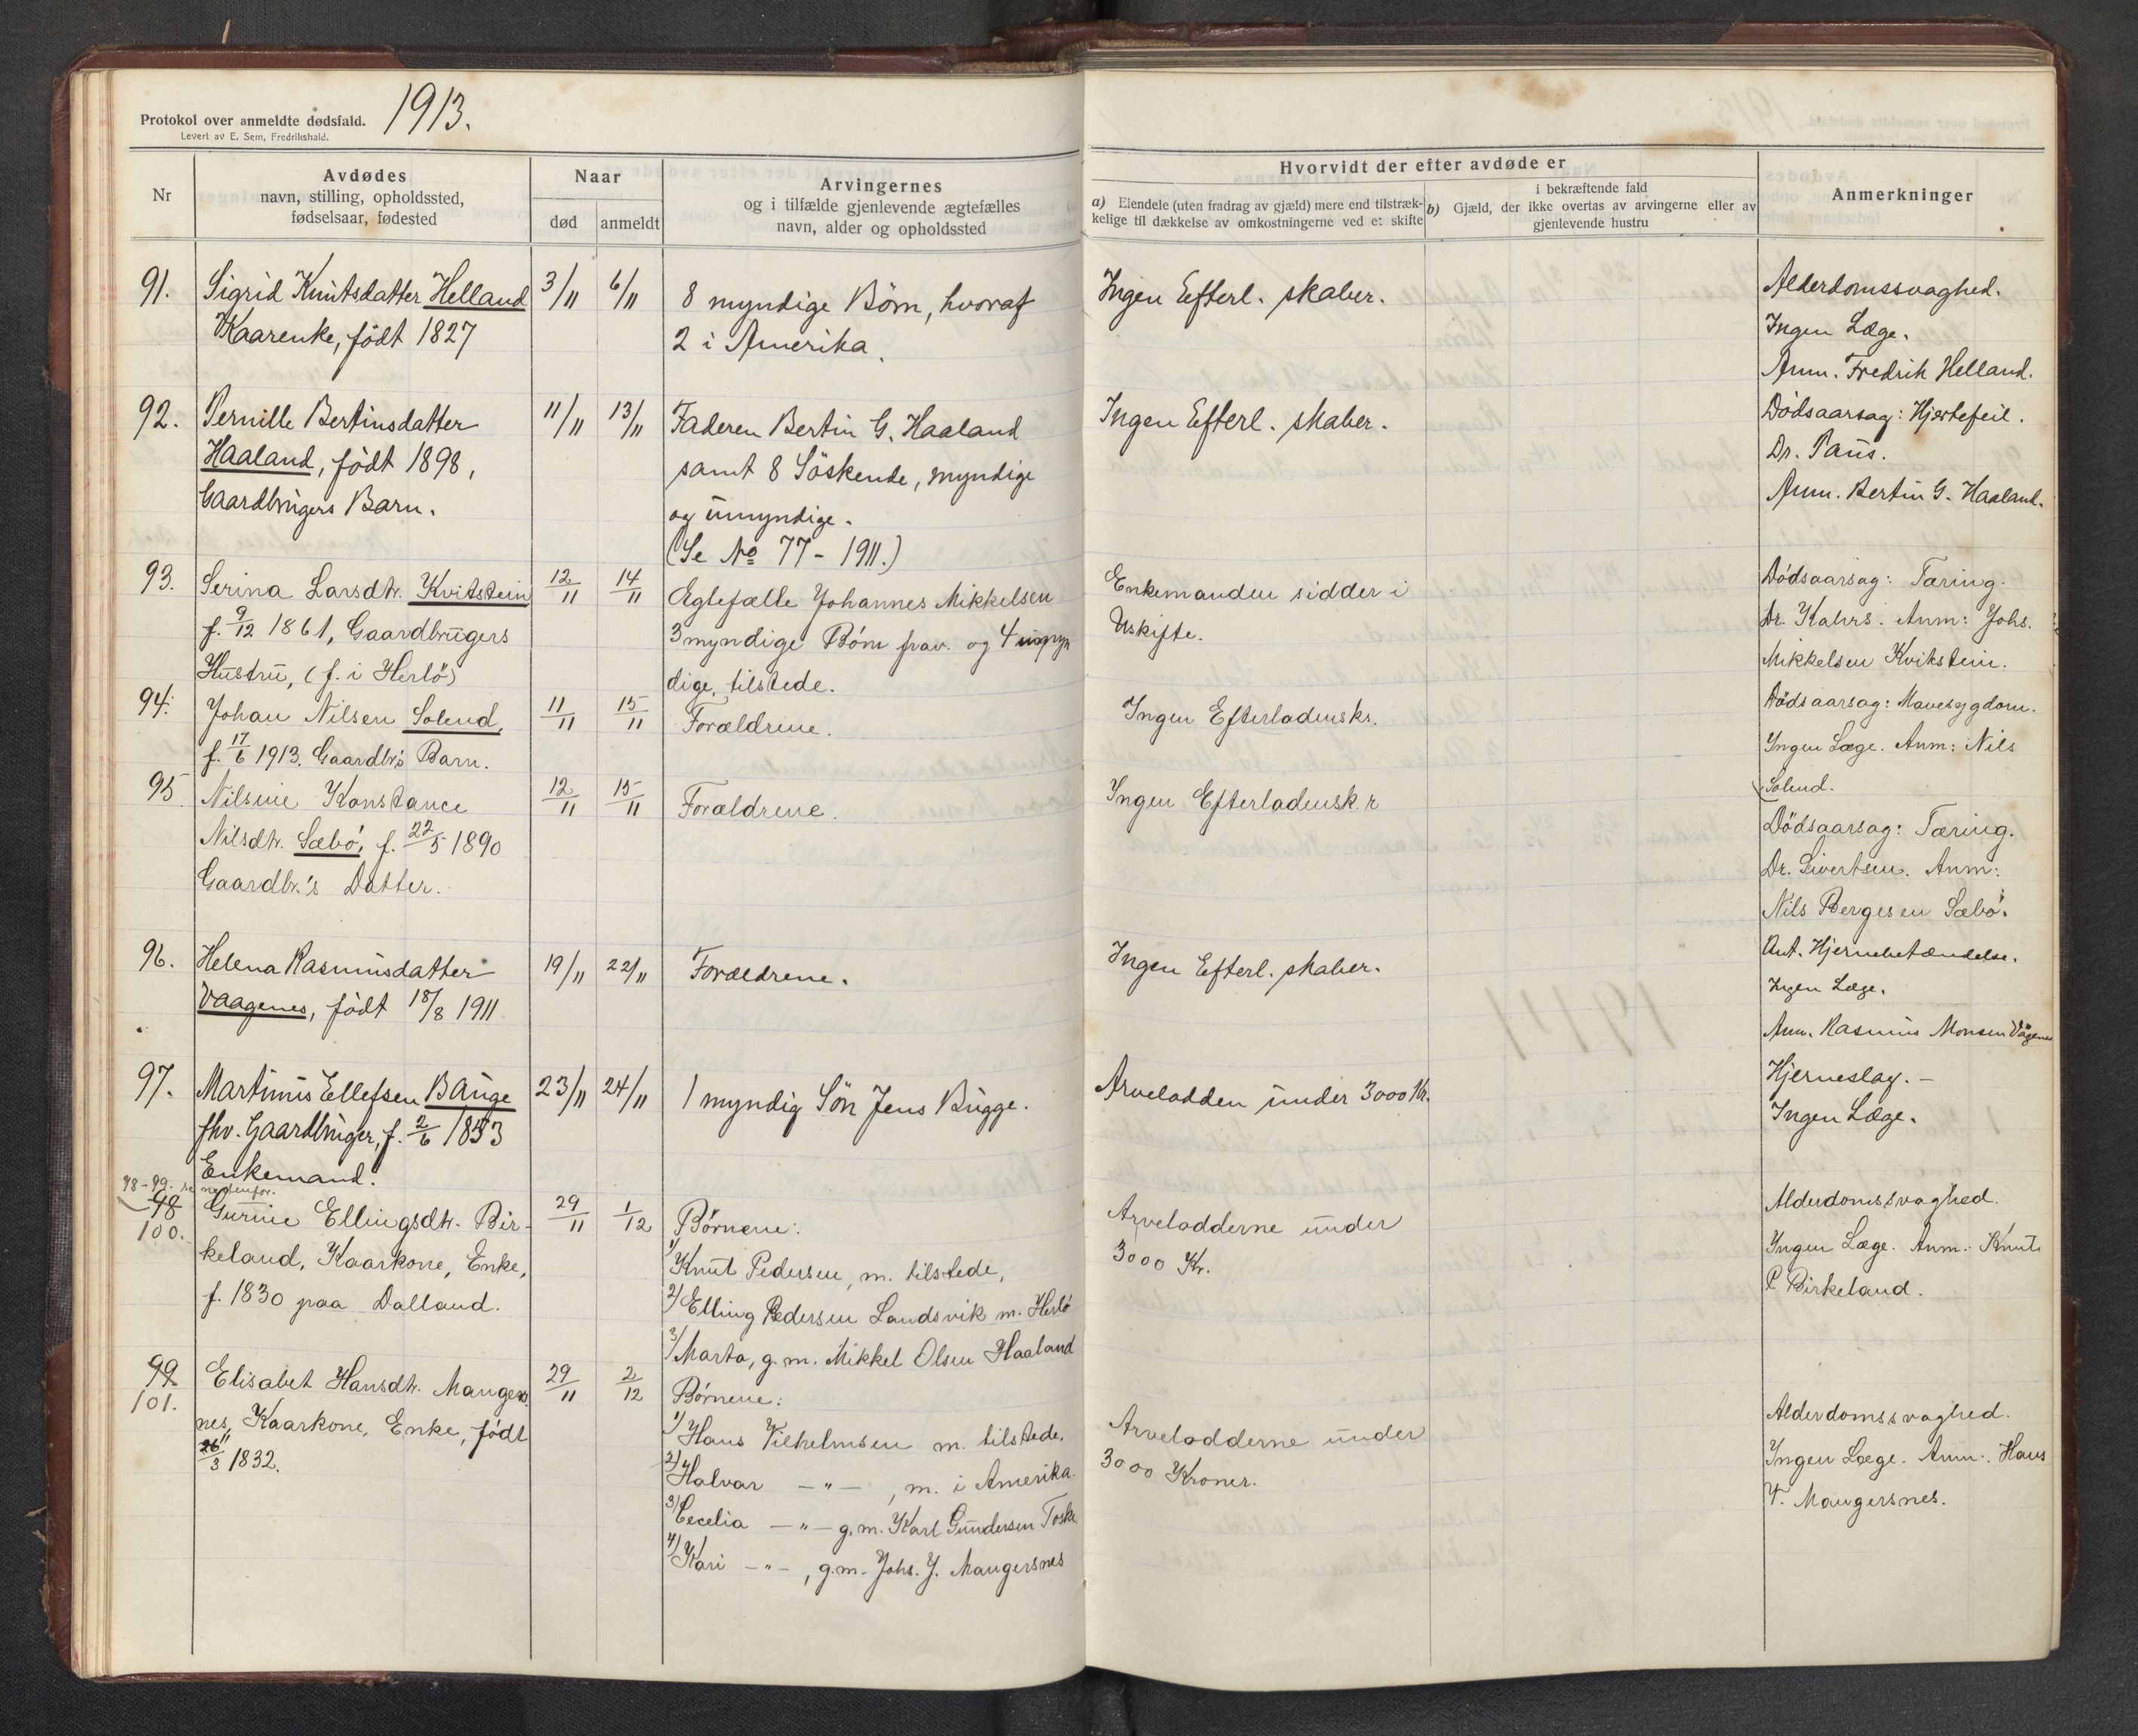 Protokol over anmeldte dødsfald. 1913.
Levert av E. Sem, Fredrikshald.
Nr
Avdødes
navn, stilling, opholdssted,
fødselsaar, fødested
Naar
død
anmeldt
Arvingernes
og i tilfælde gjenlevende ægtefælles
navn, alder og opholdssted
Hvorvidt der efter avdøde er
a) Eiendele (uten fradrag av gjæld) mere end tilstræk-
kelige til dækkelse av omkostningerne ved et skifte
i bekræftende fald
b) Gjæld, der ikke overtas av arvingerne eller av
gjenlevende hustru
Anmerkninger
91. Sigrid Knutsdatter Helland
Kaarenke, født 1827
3/11 6/11
8 myndige Börn, hvoraf
2 i Amerika.
Ingen Efterl. skaber.
Alderdomssvaghed.
Ingen Læge.
Anm. Fredrik Helland.
92. Pernille Bertinsdatter
Haaland, født 1898,
Gaardbrugers Barn.
11/11 13/11
Faderen Bertin G. Haaland
samt 8 Söskende, myndige
og umyndige.
(Se No 77 - 1911.)
Ingen Efterl. skaber.
Dödsaarsag: Hjertefeil.
Dr. Paus.
Anm. Bertin G. Haaland.
93. Serina Larsdtr. Kvitstein
f. 9/12 1861, Gaardbrugers
Hustru, (f. i Herlö)
12/11 14/11
Egtefælle Johannes Mikkelsen
3 myndige Börn frav. og 4 umyn
dige, tilstede.
Enkemanden sidder i
Uskifte.
Dödsaarsag: Tæring.
Dr. Kahrs. Anm: Johs.
Mikkelsen Kvitstein.
94. Johan Nilsen Solend,
f. 17/6 1913. Gaardbr's Barn.
11/11 15/11
Forældrene.
Ingen Efterladensks.
Dödsaarsag: Mavesygdom.
Ingen Læge. Anm: Nils
Solend.
95 Nilsine Konstance
Nilsdtr. Sæbö, f. 22/5 1890
Gaardbr.'s Datter.
12/11 15/11
Forældrene.
Ingen Efterladensk.r
Dödsaarsag: Tæring.
Dr. Sivertsen. Anm:
Nils Bergesen Sæbö.
96. Helena Rasmusdatter
Vaagenes, født 18/8 1911
19/11 22/11
Forældrene.
Ingen Efterl. skaber.
Ant. Hjernebetændelse.
Ingen Læge.
Anm. Rasmus Monsen Vågenes
97. Martinus Ellefsen Bauge
fhv. Gaardbruger, f. 2/6 1833
Enkemand.
23/11 24/11
1 myndig Sön Jens Bugge.
Arvelodden under 3000 Kr.
Hjerneslag. -
Ingen Læge.
98-99. se nedenfor.
98
100.
Gurine Ellingsdtr. Bir-
keland, Kaarkone, Enke,
f. 1830 paa Dalland.
29/11 1/12
Börnene:
1/ Knut Pedersen, m. tilstede,
2/ Elling Pedersen Landsvik m. Herlö
3/ Marta, g. m. Mikkel Olsen Haaland
Arvelodderne under
3000 Kr.
Alderdomssvaghed.
Ingen Læge. Anm.: Knut
P. Birkeland.
99
101.
Elisabet Hansdtr. Mangers
nes, Kaarkone, Enke, födt
26/3 1832.
29/11 2/12
Börnene:
1/ Hans Vilhelmsen m. tilstede.
2/ Halvar - " - , m. i Amerika.
3/ Cecelia - " - g.m. Karl Gundersen Toske
4/ Kari - " - , g.m. Johs. J. Mangersnes
Arvelodderne under
3000 Kroner.
Alderdomssvaghed.
Ingen Læge. Anm.: Hans
V. Mangersnes.